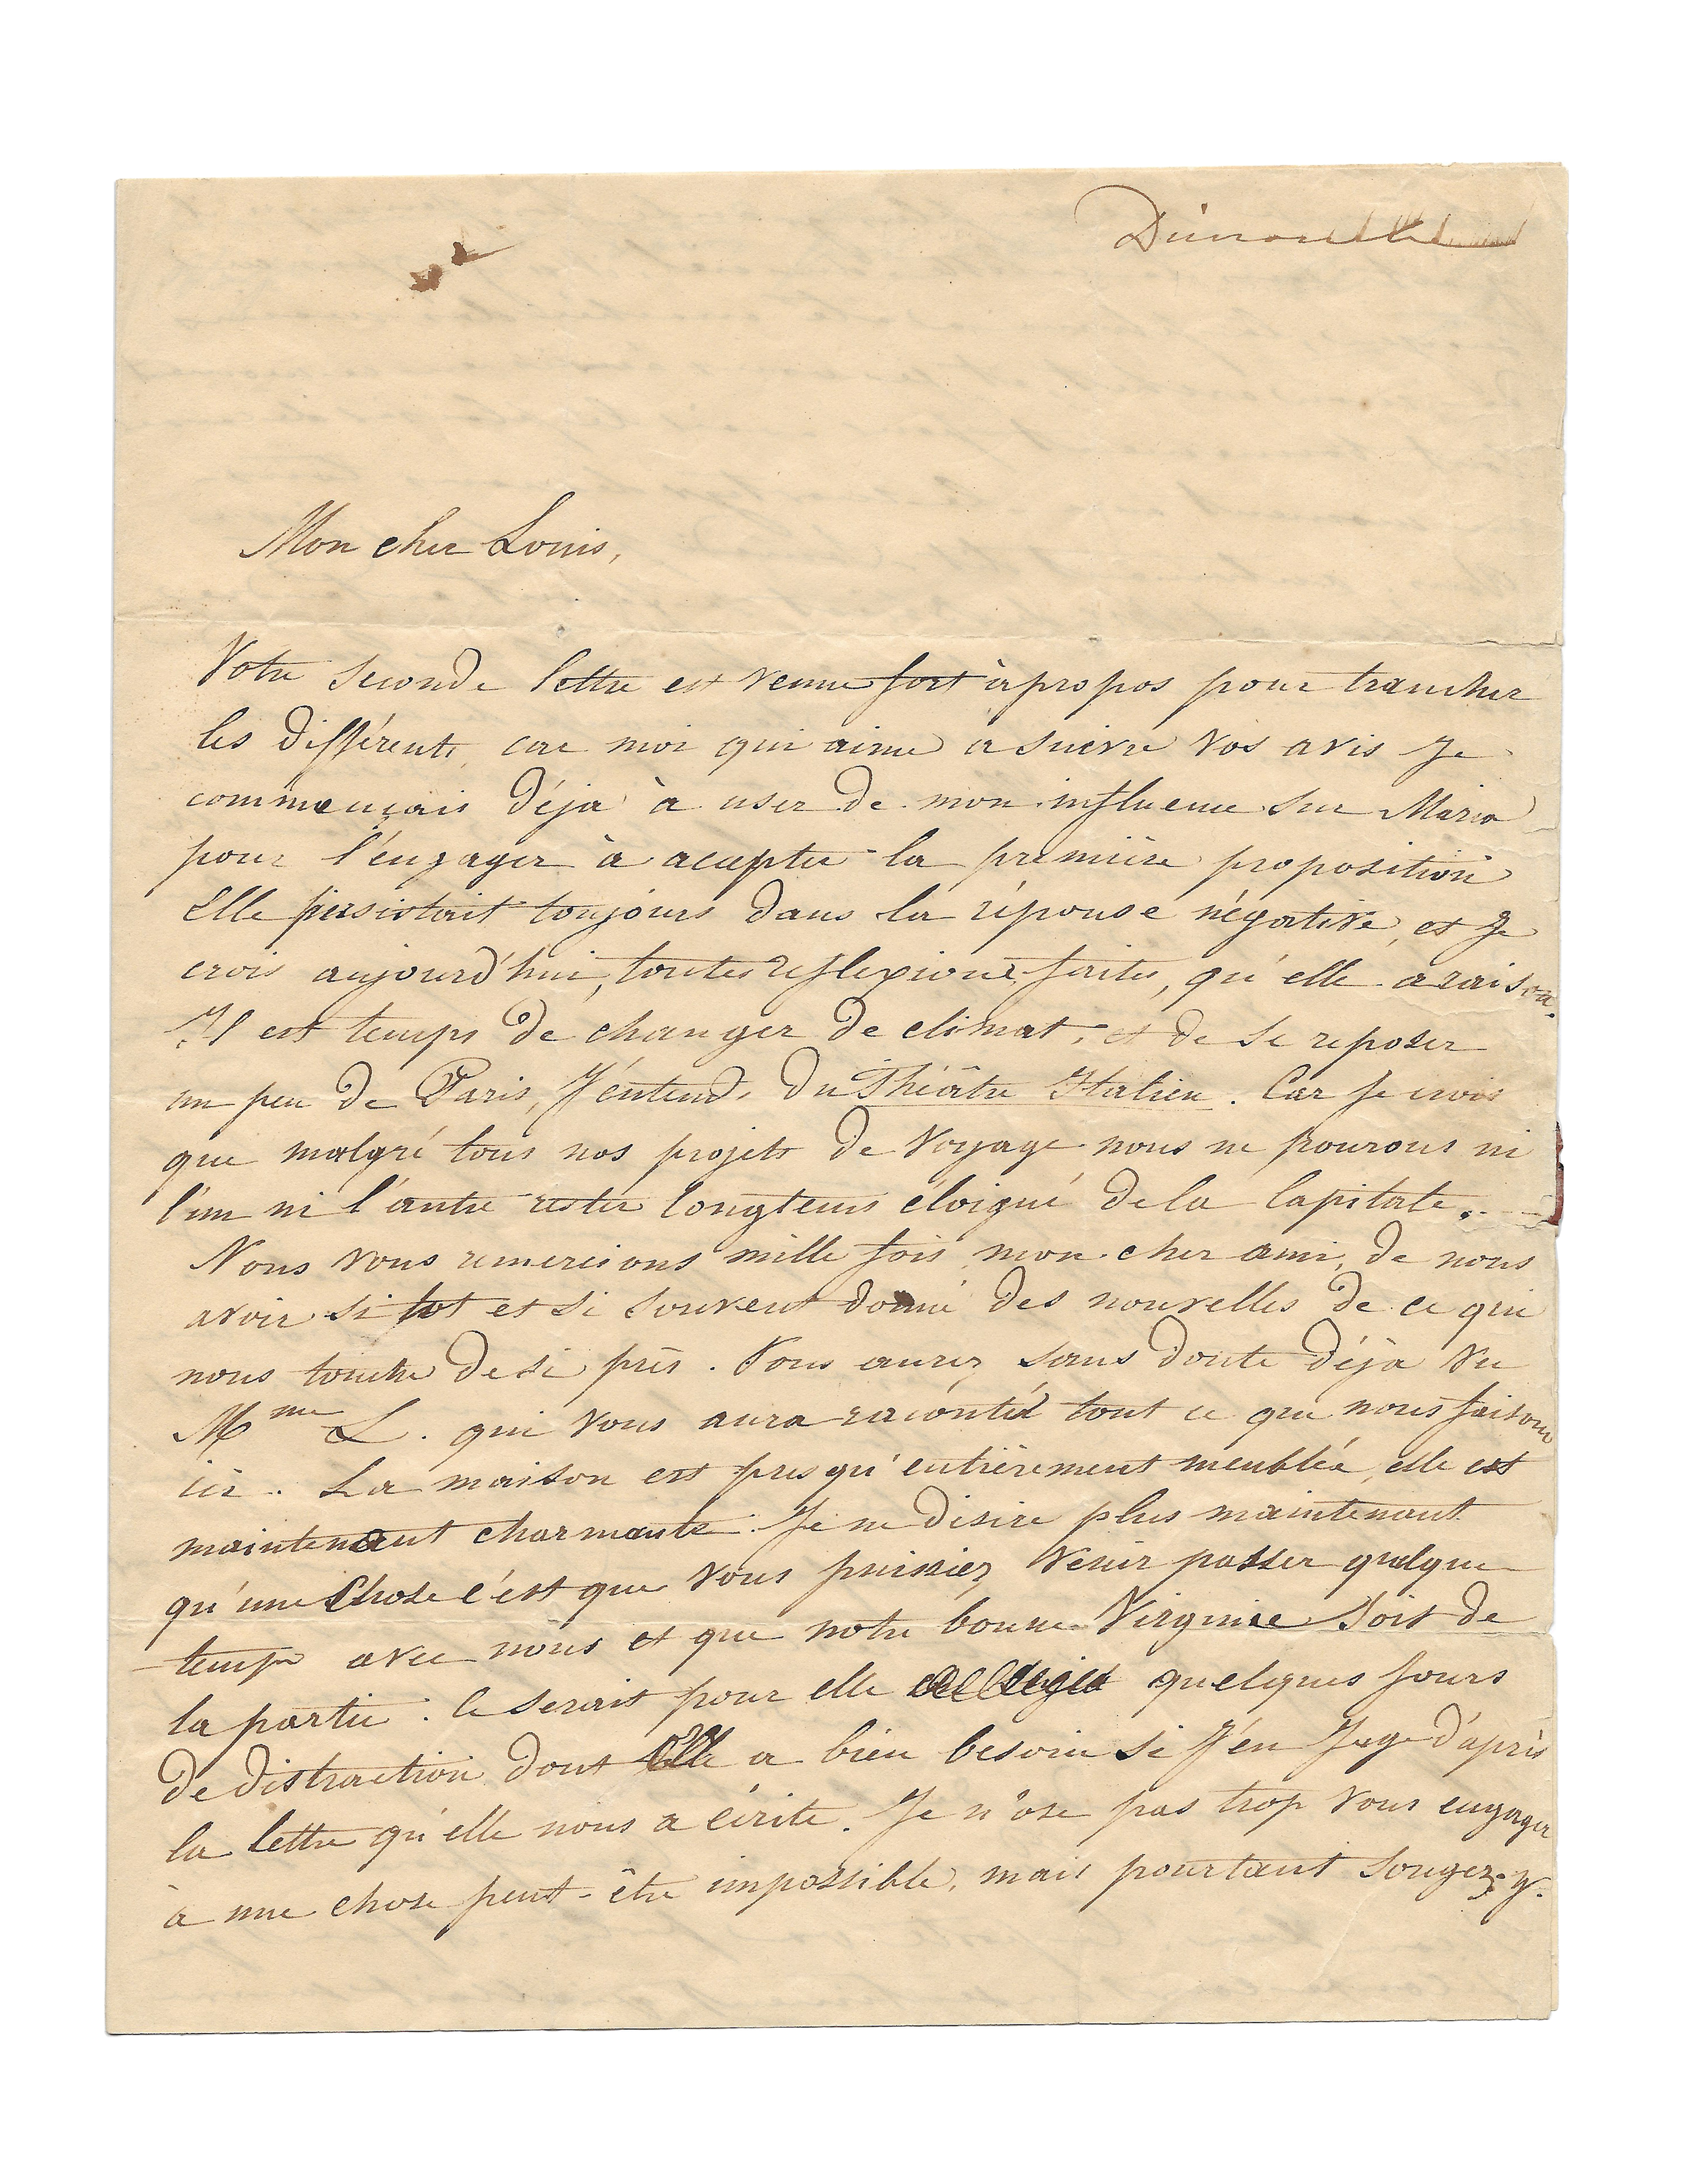 Mon cher Louis,
Votre seconde lettre est venue fort à propos pour trancher
les différents, car moi qui aime à suivre vos avis je
commençais déja à user de mon influence sur Maria
pour l'engager à accepter la première proposition
Elle persistait toujours dans la réponse négative, et je
crois aujourd'hui, toutes reflexions faites, qu'elle a raison.
Il est temps de changer de climat, et de se reposer
un peu de Paris, j'entends du Théâtre Italien. Car je crois
que malgré tous nos projets de voyage nous ne pourons ni
l'un ni l'autre rester longtems éloigné de la Capitale.
Nous vous remercions mille fois mon cher ami, de nous
avoir si tot et si souvent donné des nouvelles de ce qui
nous touche de si près. Vous aurez sans doute déjà vu
Mme L. qui vous aura raconté tout ce que nous faisons
ici. La maison est presqu'entièrement meublée, elle est
maintenant charmante. Je ne désire plus maintenant
qu'une chose c'est que vous puissiez venir passer quelque
temps avec nous et que notre bonne Virginie soit de
la partie. Ce serait pour elle quelques jours
de distraction dont elle a bien besoin si j'en juge d'après
la lettre qu'elle nous a écrite. Je n'ose pas trop vous engager
à une chose peut-être impossible, mais pourtant songez-y.